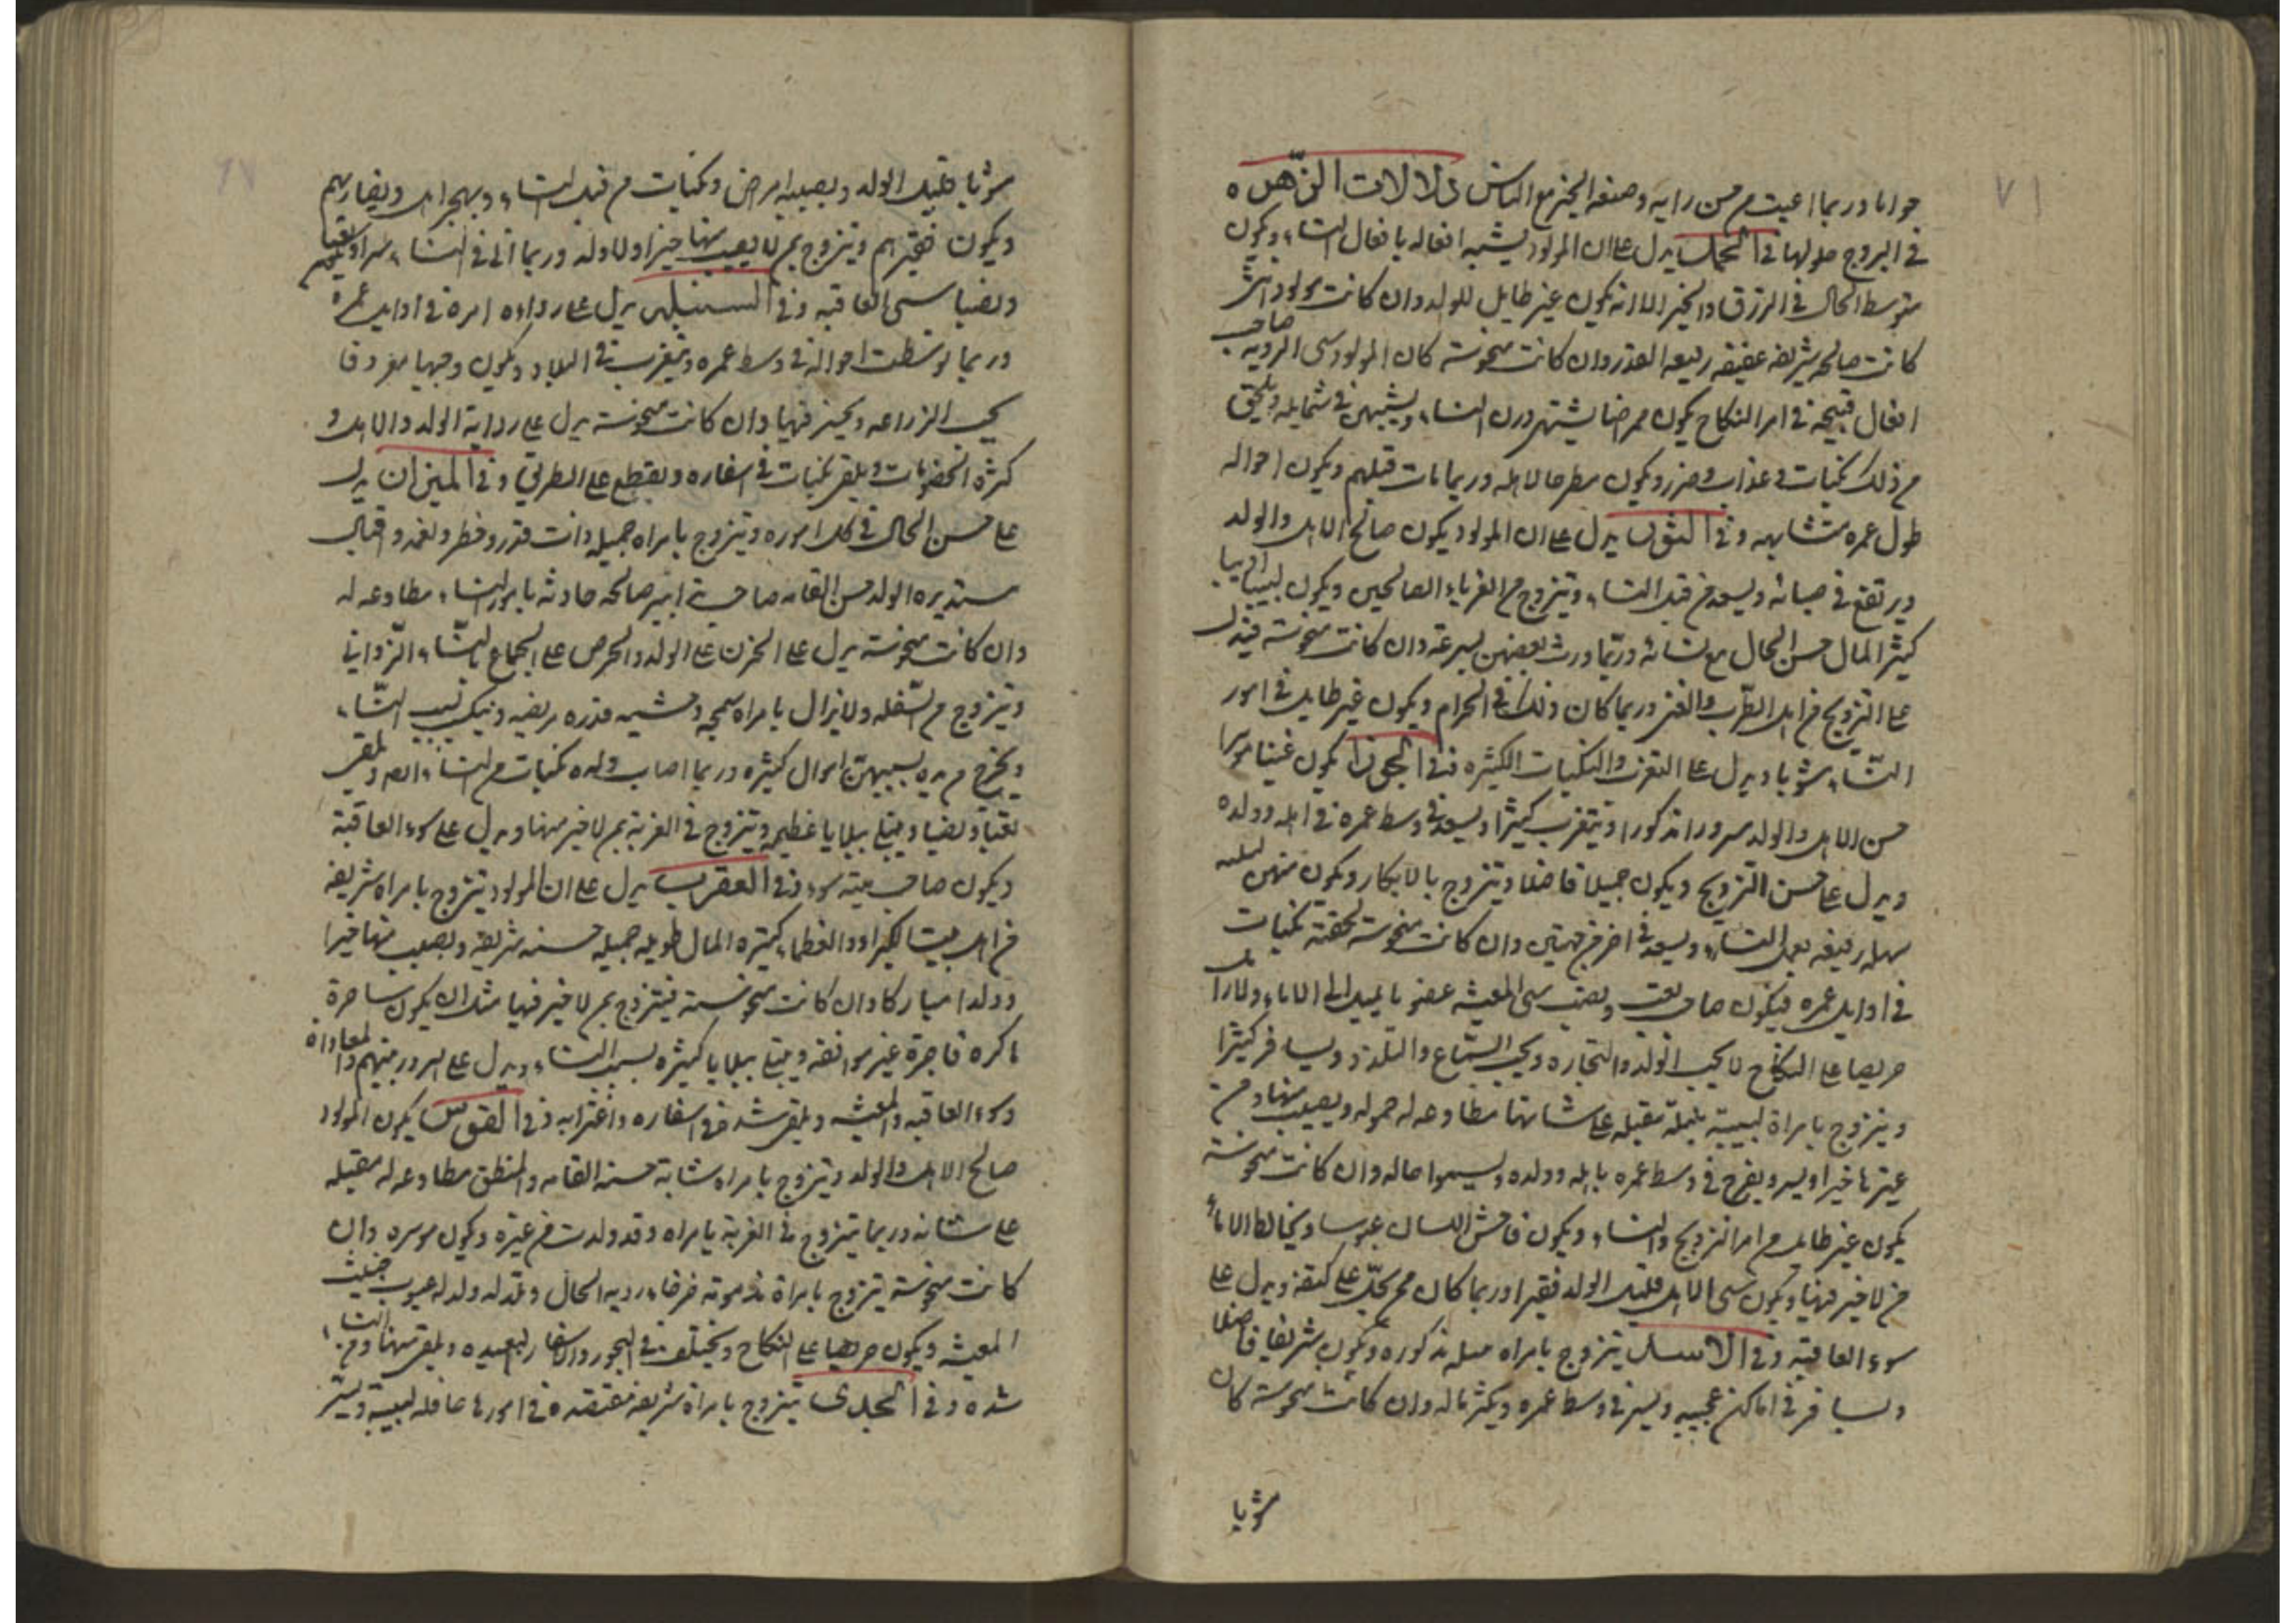 جوابا وربما اعيت من حسن رايه وصنعه الخير مع الناس دلالات الزهره
في البروج حلولها في الحمل يدل على ان المولود يشبه افعاله بافعال النساء ويكون
متوسط الحال في الرزق والخير الا انه يكون غير طايل للولد وان كانت مولود انثى
كانت صالحه شريفه عفيفه رفيعه القدر وان كانت منحوسة كان المولود سى الرديه صاحب
افعال قبيحة في امر النكاح يكون ممرضا يشتهر درن النساء ويشبهن في شمايله ويلحق
من ذلك نكبات وعذاب وضرر ويكون مطرحا لاهله وربما مات قبلهم ويكون احواله
طول عمره متشابهه وفي الثور يدل على ان المولود يكون صالح الاهل والولد
ويرتفع في حياته ويسعد من قبل النساء ويتزوج من الغرباء الصالحين ويكون لبيبا اديبا
كثير المال حسن الحال مع نسائه وربما ورث بعضهن بسرعة وان كانت منحوسة فيدل
على التزويج من اهل الطرب والغنى وربما كان ذلك في الحرام ويكون غير طايل في امور
النساء مشوبا ويدل على التغرب والنكبات الكثيره وفي الجوزا يكون غنيا موسرا
حسن الاهل والولد مسرورا مذكورا ويتغرب كثيرا ويسعد في وسط عمره في اهله وولده
ويدل على حسن التزويج ويكون جميلا فاضلا ويتزوج بالابكار ويكون منهن
سهله رفيعه بعمل النساء ويسعد في اخر من جهتين وان كانت منحوسة لحقته نكبات
في اوايل عمره فيكون صاحب تعب ونصب سى المعيشه عضوبا يميل الى الاماء
حريصا على النكاح لا يحب الولد والتجاره ويحب السماع والتلذذ ويسافر كثيرا
ويتزوج بامراة لبيبة نبيلة مقبله على شانها مطاوعه له حموله ويصيب منها ومن
غيرها خيرا ويسر ويفرح في وسط عمره باهله وولده ويسموا حاله وان كانت منحوسة
يكون غير طايل من امر التزويج والنساء ويكون فاحش اللسان عبوسا ويخالط الاماء
من لا خير فيها ويكون سى الاهل قليل الولد فقيرا وربما كان ممن يحمل على كتفه ويدل على
سوء العاقبة وفي الاسد يتزوج بامراه مذكوره ويكون شريفا فاضلا
ويسافر في اماكن عجيبه ويسر في وسط عمره ويكثر ماله وان كانت منحوسة كان
مشوبا
مشوبا قليل الولد ويصيبه امراض ونكبات من قبل النساء ويهجر اهله ويفارقهم
ويكون فقيرا ويتزوج بمن لا يصيب منها خيرا ولا ولد وربما اتى في النساء
ونصبا سى العاقبه وفي السنبله يدل على رداءه امره في اوايل عمره
وربما توسطت احواله في وسط عمره ويتغرب في البلاد ويكون وجيها معروفا
يحب الزراعه ويخير فيها وان كانت منحوسة يدل على رداية الولد والاهل و
كثرة الخصومات ويلقى نكبات في اسفاره ويقطع عليه الطريق وفي الميزان يدل
على حسن الحال في كل اموره ويتزوج بامراه جميله ذات قدر وخطر ونعمه وقبال
الولد حسن القامه صاحب صالحه حاذقه بامور النساء مطاوعه له
وان كانت منحوسة يدل على الحزن على الولد والحرص على الجماع بالنساء الزواني
ويتزوج من السفله ولا يزال بامراه سمجه قذره مريضه وينكب بسبب النساء
ويخرج من يده بسببهن اموال كثيره وربما اصاب ولده نكبات من النساء ويلقى
تعبا ونصبا ويبتلى ببلايا عظيمه ويتزوج في الغربة بمن لا خير فيها ويدل على سوء العاقبة
ويكون صاحب ميته سوء وفي العقرب يدل على ان المولود يتزوج بامراه شريفه
من اهل بيت الكبراء والعظماء كثيره المال طويله جميله حسنه شريفه ويصيب منها خيرا
وولدا مباركا وان كانت منحوسة فيتزوج بمن لا خير فيها مثل ان يكون ساحرة
ماكره فاجرة غير موافقه ويبتلى ببلايا كثيره بسبب النساء ويدل على الشرور بينهم والمعاداة
وسوء العاقبه والمعيشه ويلقى شده في اسفاره واغترابه وفي القوس يكون المولود
صالح الاهل والولد ويتزوج بامراه شابة حسنه القامه والمنطق مطاوعه له مقبله
على شانه وربما يتزوج في الغربة بامراه وقد ولدت من غيره ويكون موسره وان
كانت منحوسة يتزوج بامراة مذمومة خرقاء رديه الحال وتلد له ولد له عيوب خبيث
المعيشه ويكون حريصا على النكاح ويختلف في البحور والاسفار البعيده ويلقى منها ومن النساء
شده وفي الجدى يتزوج بامراة شريفه مقتصده في امورها عاقله لبيبة ويستر